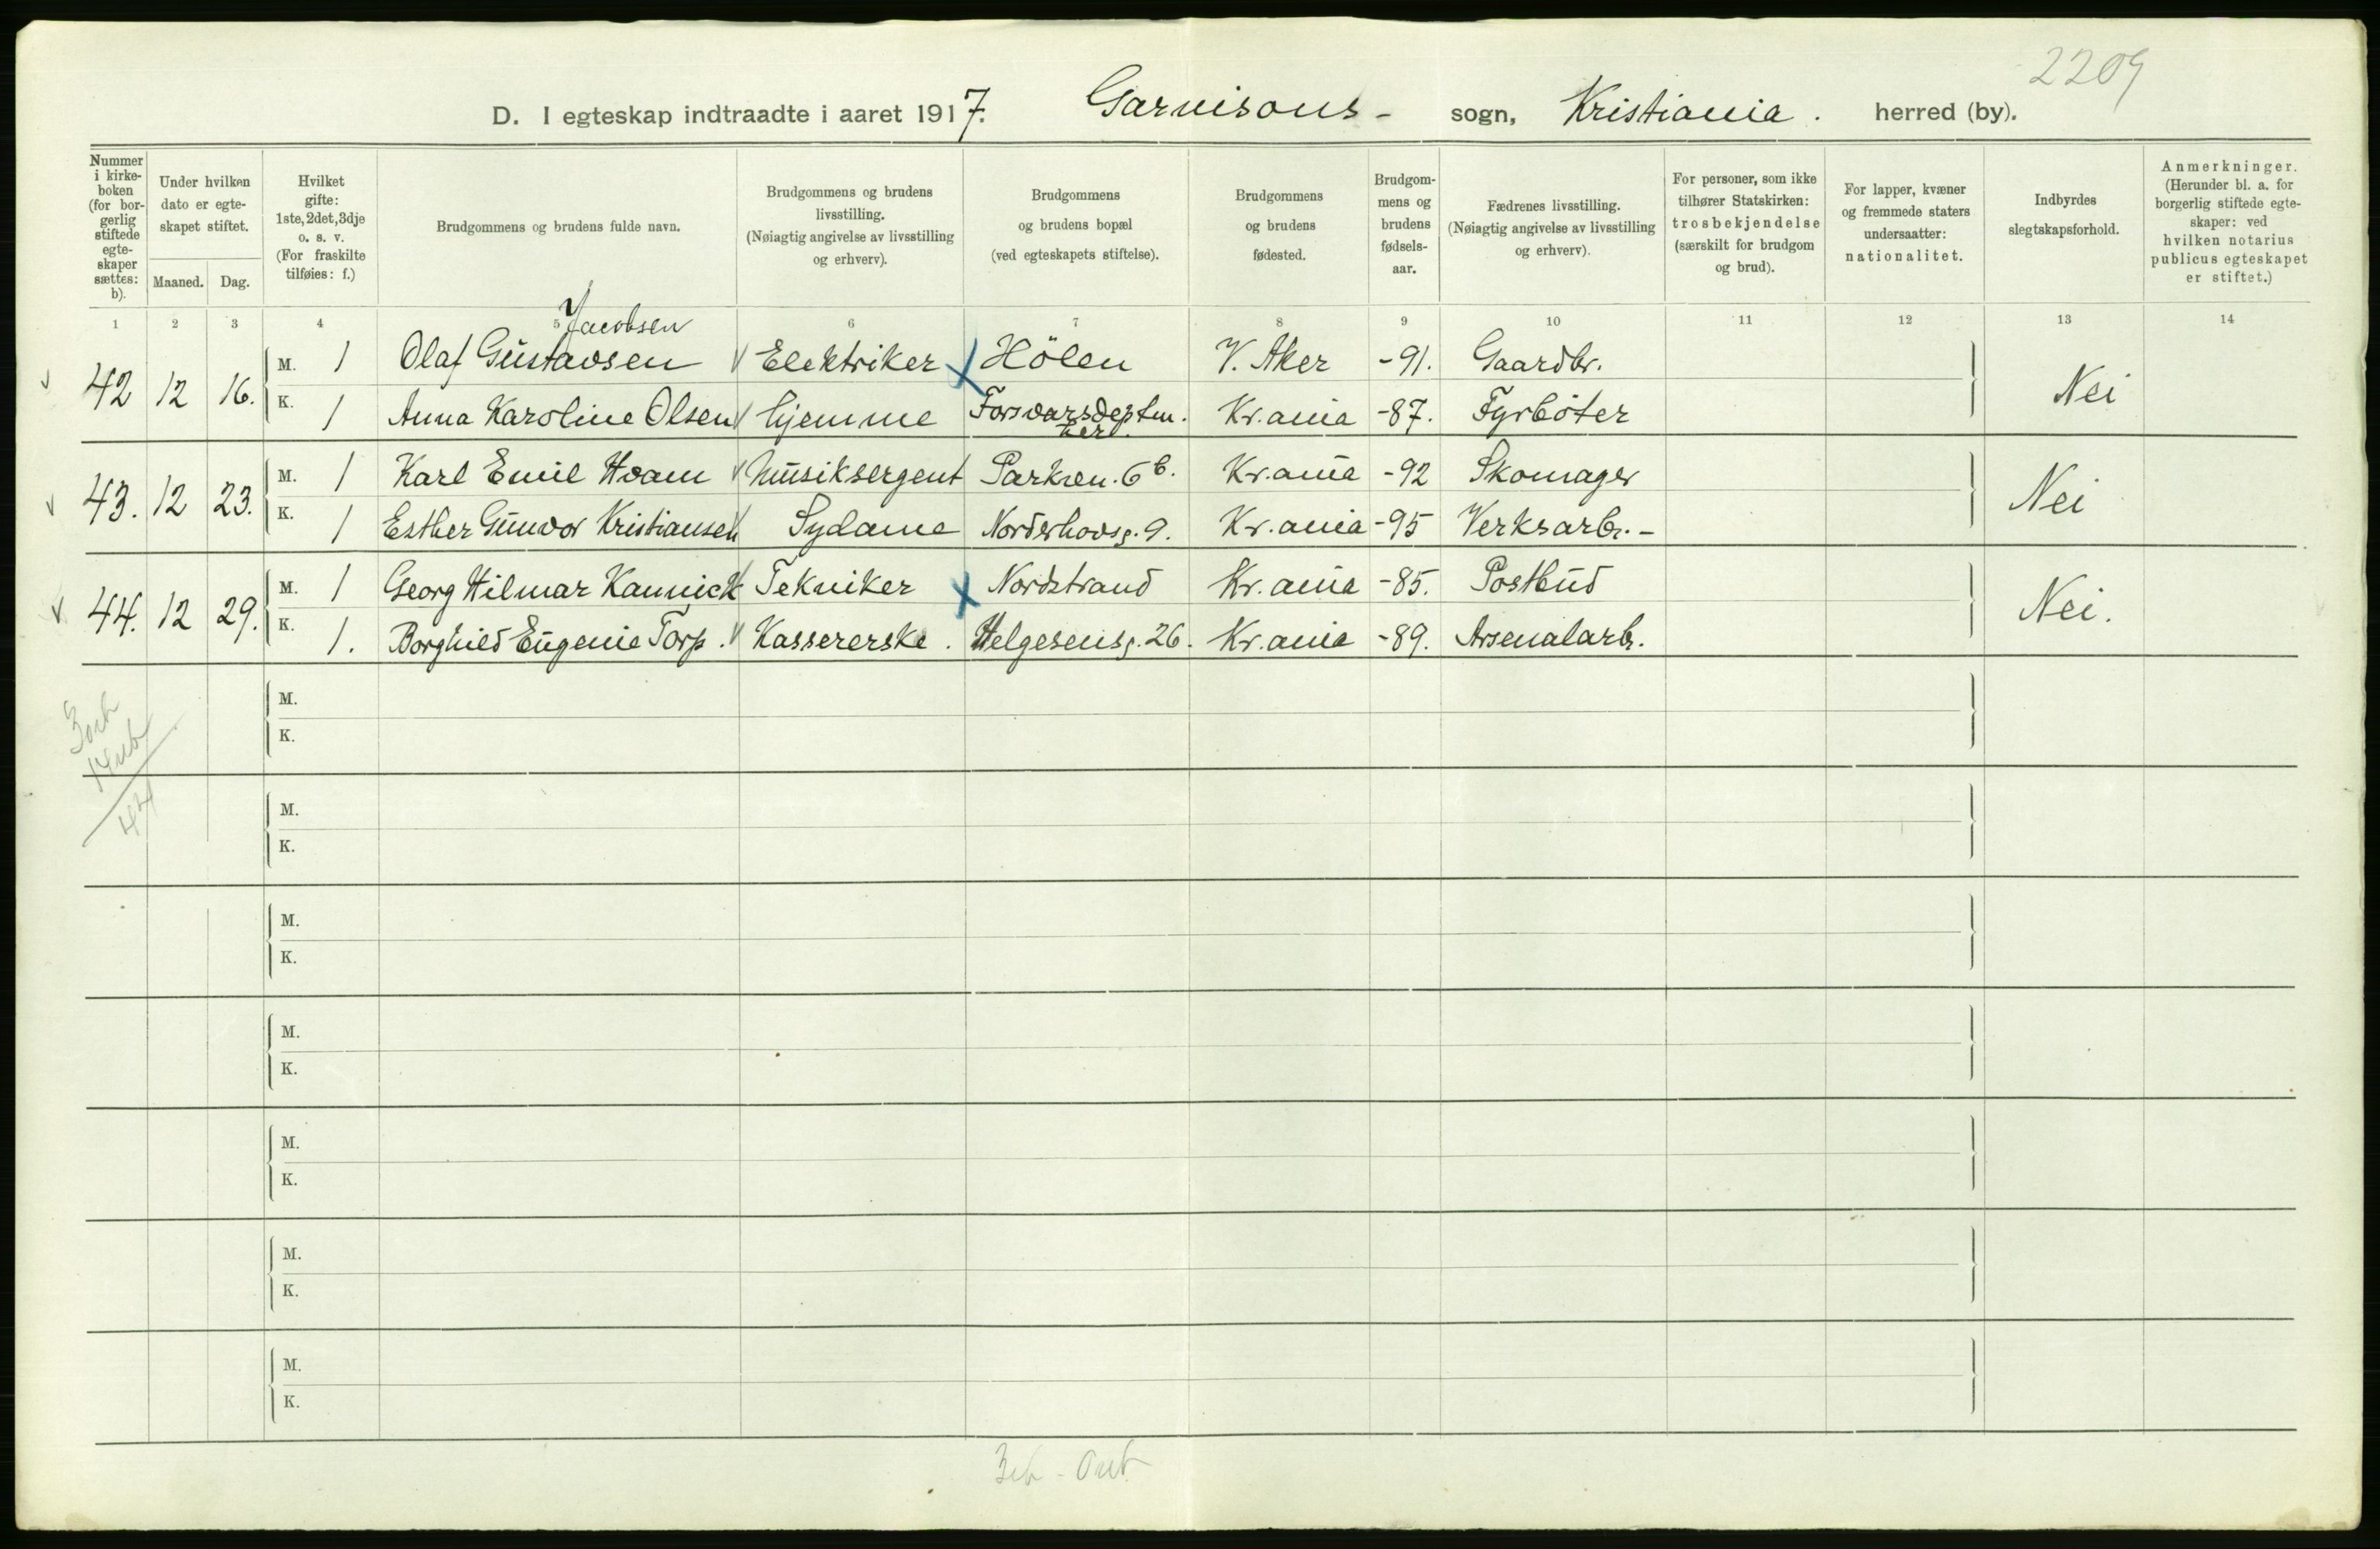 2209
D. I egteskap indtraadte i aaret 1917. Garnisons- sogn, Kristiania. herred (by).
Nummer i kirke-boken (for bor-gerlig stiftede egte-skaper sættes: b).
Under hvilken dato er egte-skapet stiftet.
Maaned. Dag.
Hvilket gifte: 1ste, 2det, 3dje o. s. v. (For fraskilte tilføies: f.)
Brudgommens og brudens fulde navn.
Brudgommens og brudens livsstilling. (Nøiagtig angivelse av livsstilling og erhverv).
Brudgommens og brudens bopæl (ved egteskapets stiftelse).
Brudgommens og brudens fødested.
Brudgom-mens og brudens fødsels-aar.
Fædrenes livsstilling. (Nøiagtig angivelse av livsstilling og erhverv).
For personer, som ikke tilhører Statskirken: trosbekjendelse (særskilt for brudgom og brud).
For lapper, kvæner og fremmede staters undersaatter: nationalitet.
Indbyrdes slegtskapsforhold.
Anmerkninger. (Herunder bl. a. for borgerlig stiftede egte-skaper: ved hvilken notarius publicus egteskapet er stiftet.)
1 2 3 4 5 6 7 8 9 10 11 12 13 14
Jacobsen
42 12 16. M. 1 Olaf Gustavsen Elektriker Hölen V. Aker -91. Gaardbr. Nei
K. 1 Anna Karoline Olsen hjemme Forsvarsdeptm. Kr.ania -87. Fyrböter
her.
43. 12 23. M. 1 Karl Emil Hvam Musiksergent Parkvn. 6 b. Kr.ania -92 Skomager Nei
K. 1 Esther Gunvor Kristiansen Sydame Norderhovsg. 9. Kr.ania -95 Verksarb. -
44. 12 29. M. 1 Georg Hilmar Kannick Tekniker Nordstrand Kr.ania -85. Postbud Nei.
K. 1. Borghild Eugenie Torp. Kassererske. Helgesensg. 26. Kr.ania -89. Arsenalarb.
M.
K.
M.
K.
M.
K.
M.
K.
M.
K.
M.
K.
M.
K.